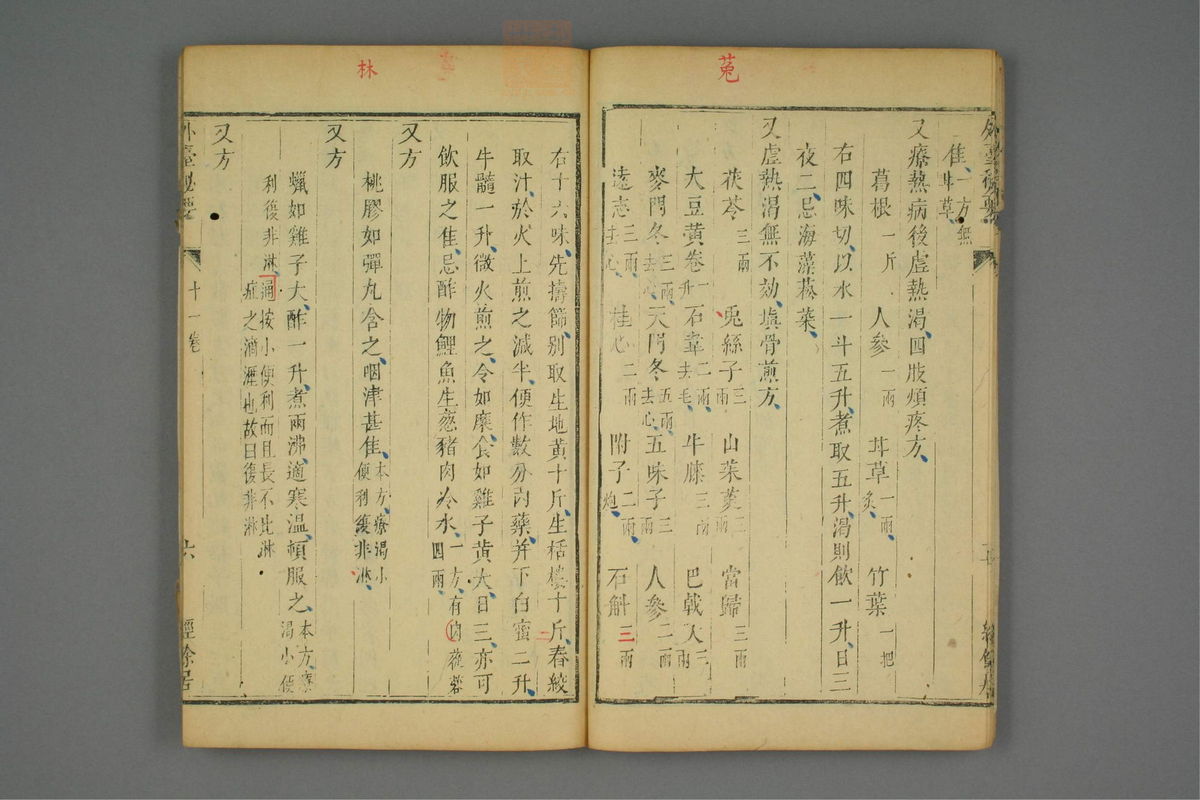 菟
佳一方無甘草
又療熱病後虛熱渴四肢煩疼方
葛根一斤 人參一兩 甘草一兩炙 竹葉一把
右四味切以水一斗五升煮取五升渴則飲一升日三
夜二忌海藻菘菜
又虛熱渴無不効塡骨煎方
茯苓三兩 兎絲子三兩 山茱萸 當歸三兩
大豆黃卷一升 石韋二兩去毛 牛膝三兩 巴戟天三兩
麥門冬三兩去心 天門冬五兩去心 五味子三兩 人參二兩
遠志三兩去心 桂心二兩 附子二兩炮 石斛三兩
林
右十六味先擣篩别取生地黃十斤生栝樓十斤舂絞
取汁於火上煎之減半便作數分內藥并下白蜜二升
牛髓一升微火煎之令如糜食如雞子黃大日三亦可
飲服之佳忌酢物鯉魚生葱豬肉冷水一方有肉蓯蓉四兩
又方
桃膠如彈丸含之咽津甚佳本方療渴小便利後非淋
又方
蠟如雞子大酢一升煮兩沸適寒溫頓服之本方療渴小便
利後非淋涌按小便利而且長不比淋症之濇澀也故曰後非淋
又方
外臺秘要 十一卷 六 經餘居